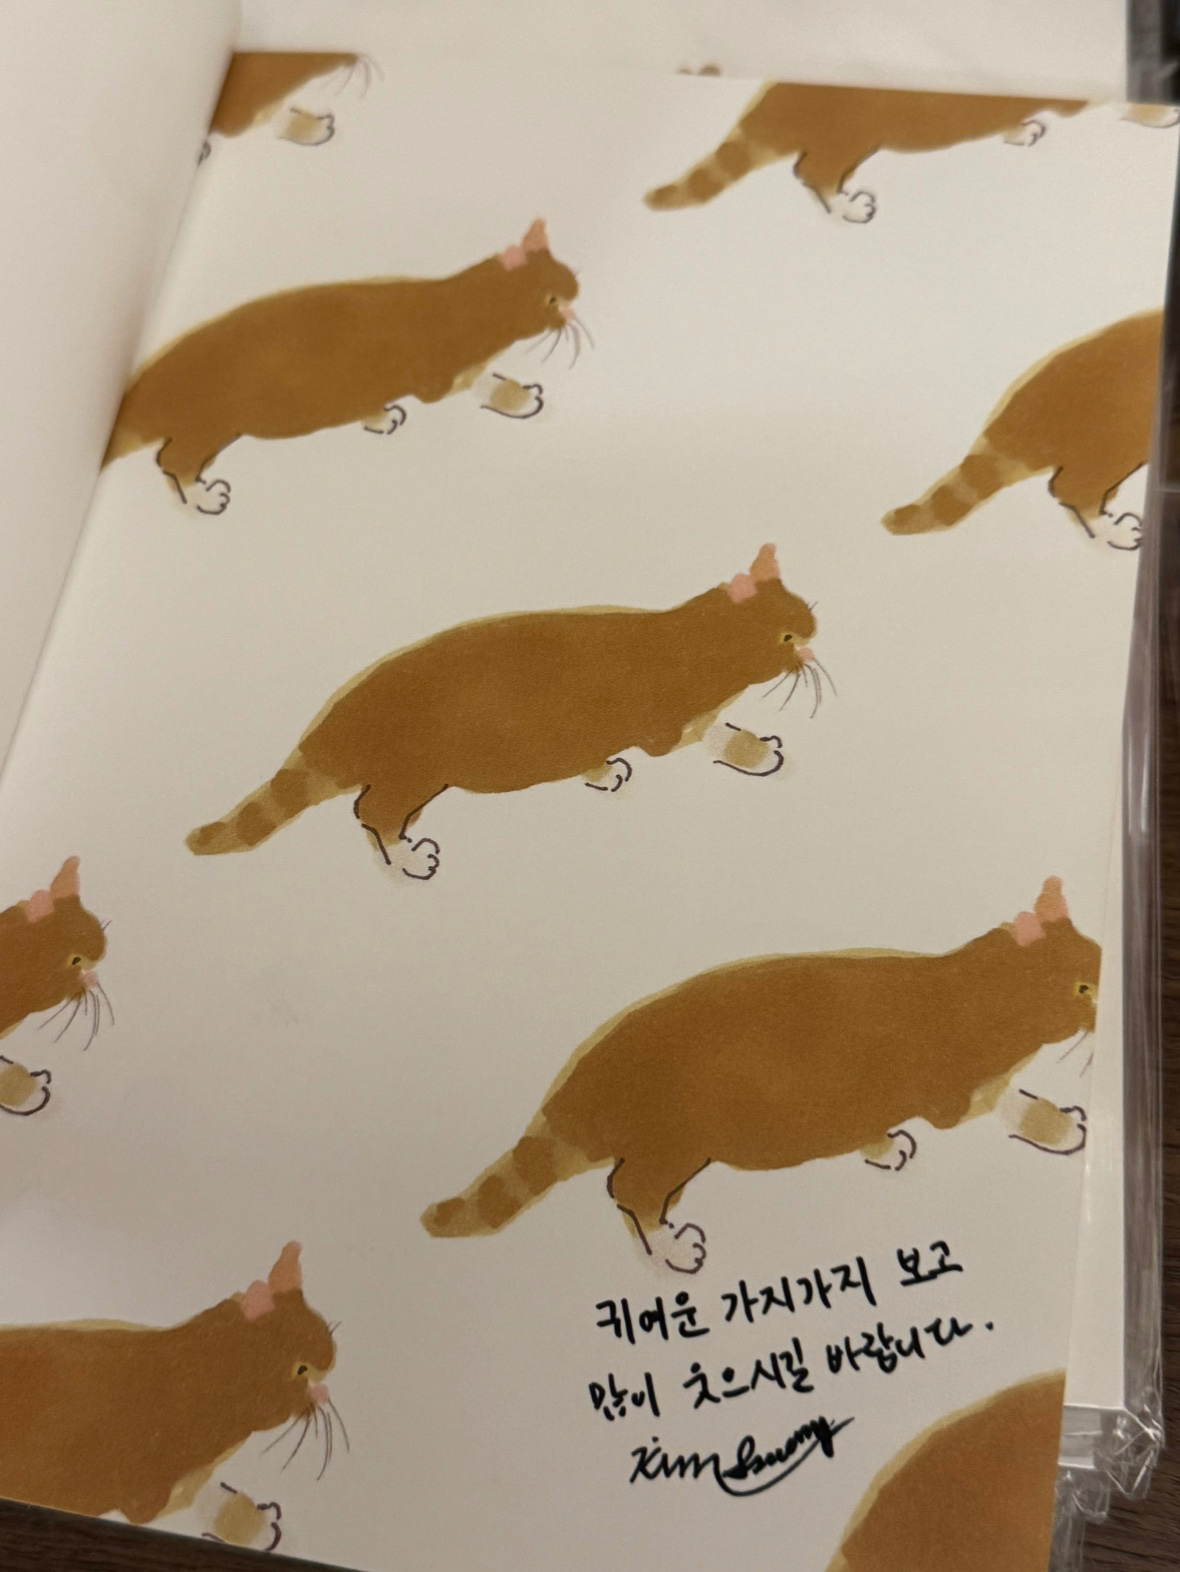 귀여운 가지가지 보고
많이 웃으시길 바랍니다.
Kim